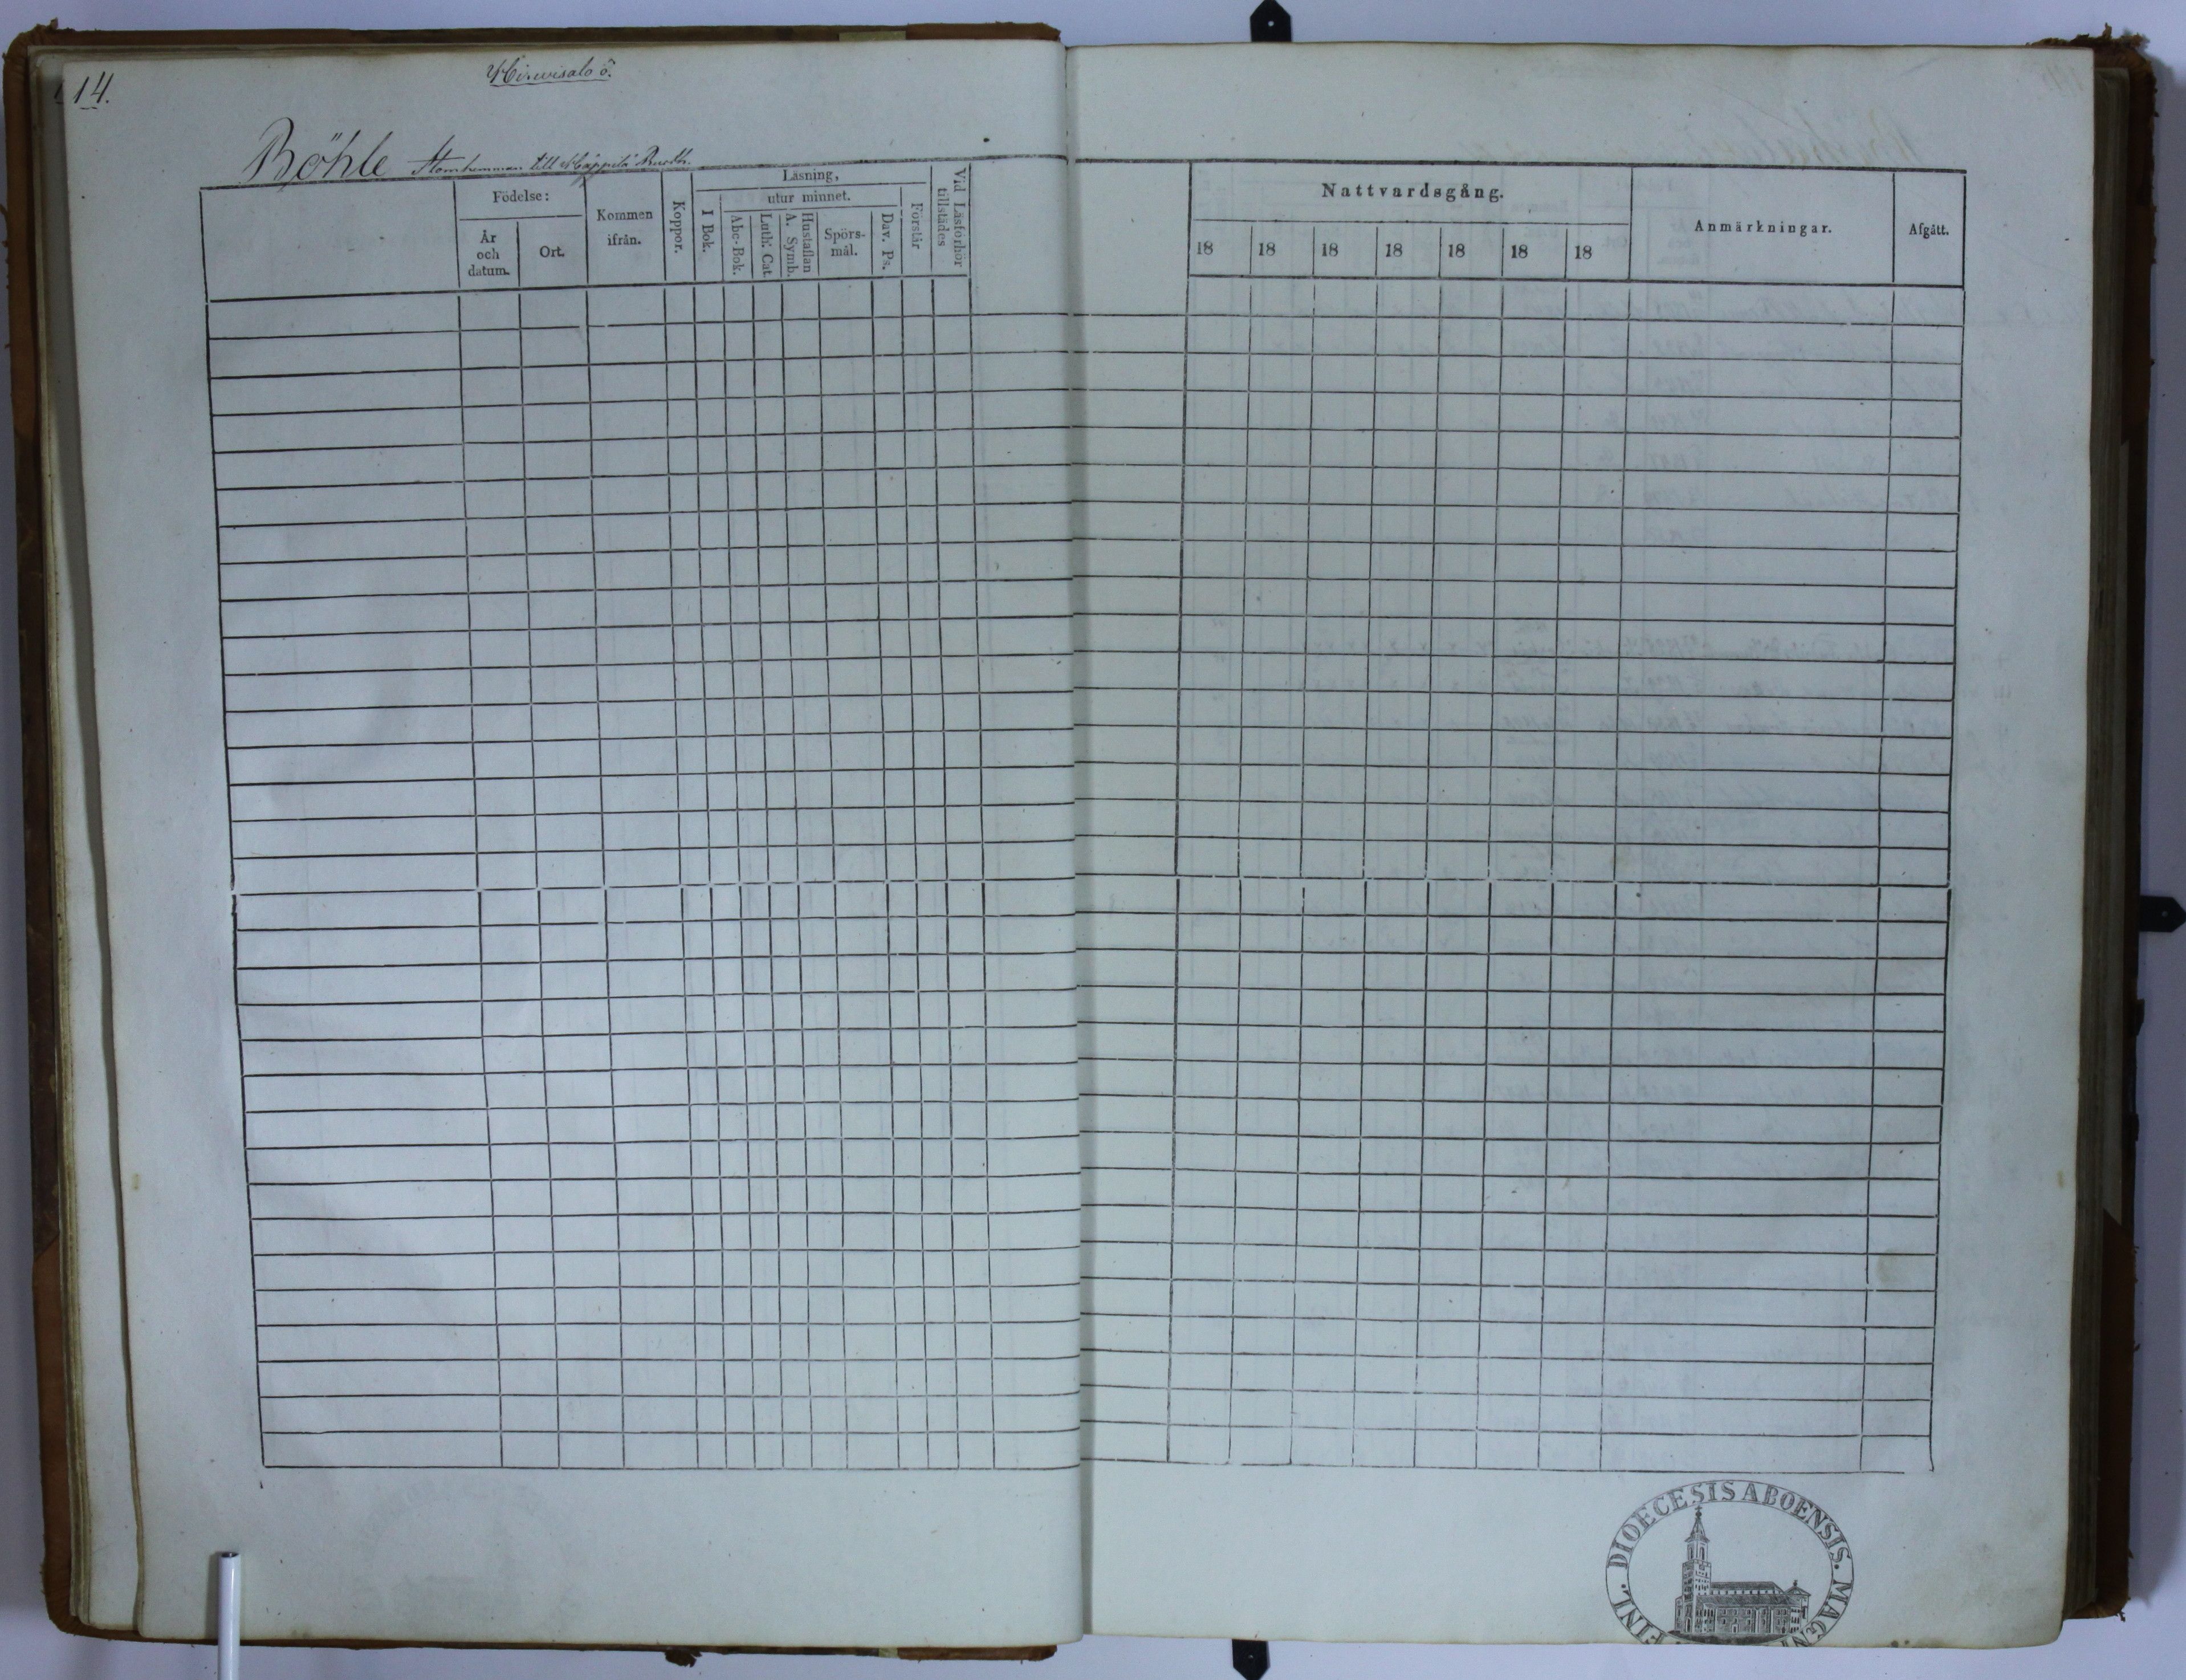 14.
Hirvisalo ö.
Böhle Stomhemman till Käppelä Rusth.
Födelse:
År och datum.
Ort.
Kommen ifrån.
Koppor.
Läsning,
I Bok.
utur minnet.
Abc-Bok.
Luth: Cat.
A. Symb.
Hustaflan
Spörs-mål.
Dav. Ps.
Förstår
Vid Läsförhör tillstädes
Nattvardsgång.
18 18 18 18 18 18 18
Anmärkningar.
Afgått.
FINL. DIOECESIS ABOENSIS. MAGNI